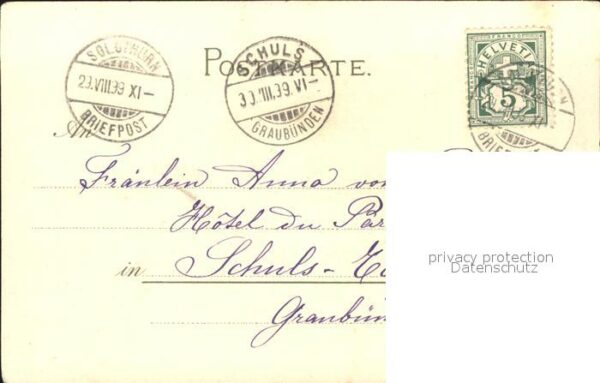 SOLOTHURN
29.VIII.99 XI—
BRIEFPOST
SCHULS
30.VIII.99.VI—
GRAUBÜNDEN
POSTKARTE.
FRANCO
HELVETIA
5
An
Fräulein Anna von
Hôtel du Par
in Schuls-
Graubün
privacy protection
Datenschutz